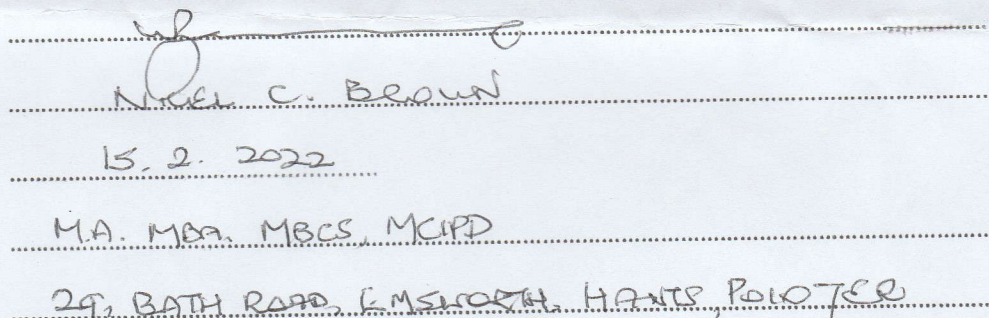 NIGEL C. BROWN
15. 2. 2022
M.A. MBA. MBCS, MCIPD
29, BATH ROAD, EMSWORTH, HANTS, PO10 7ER